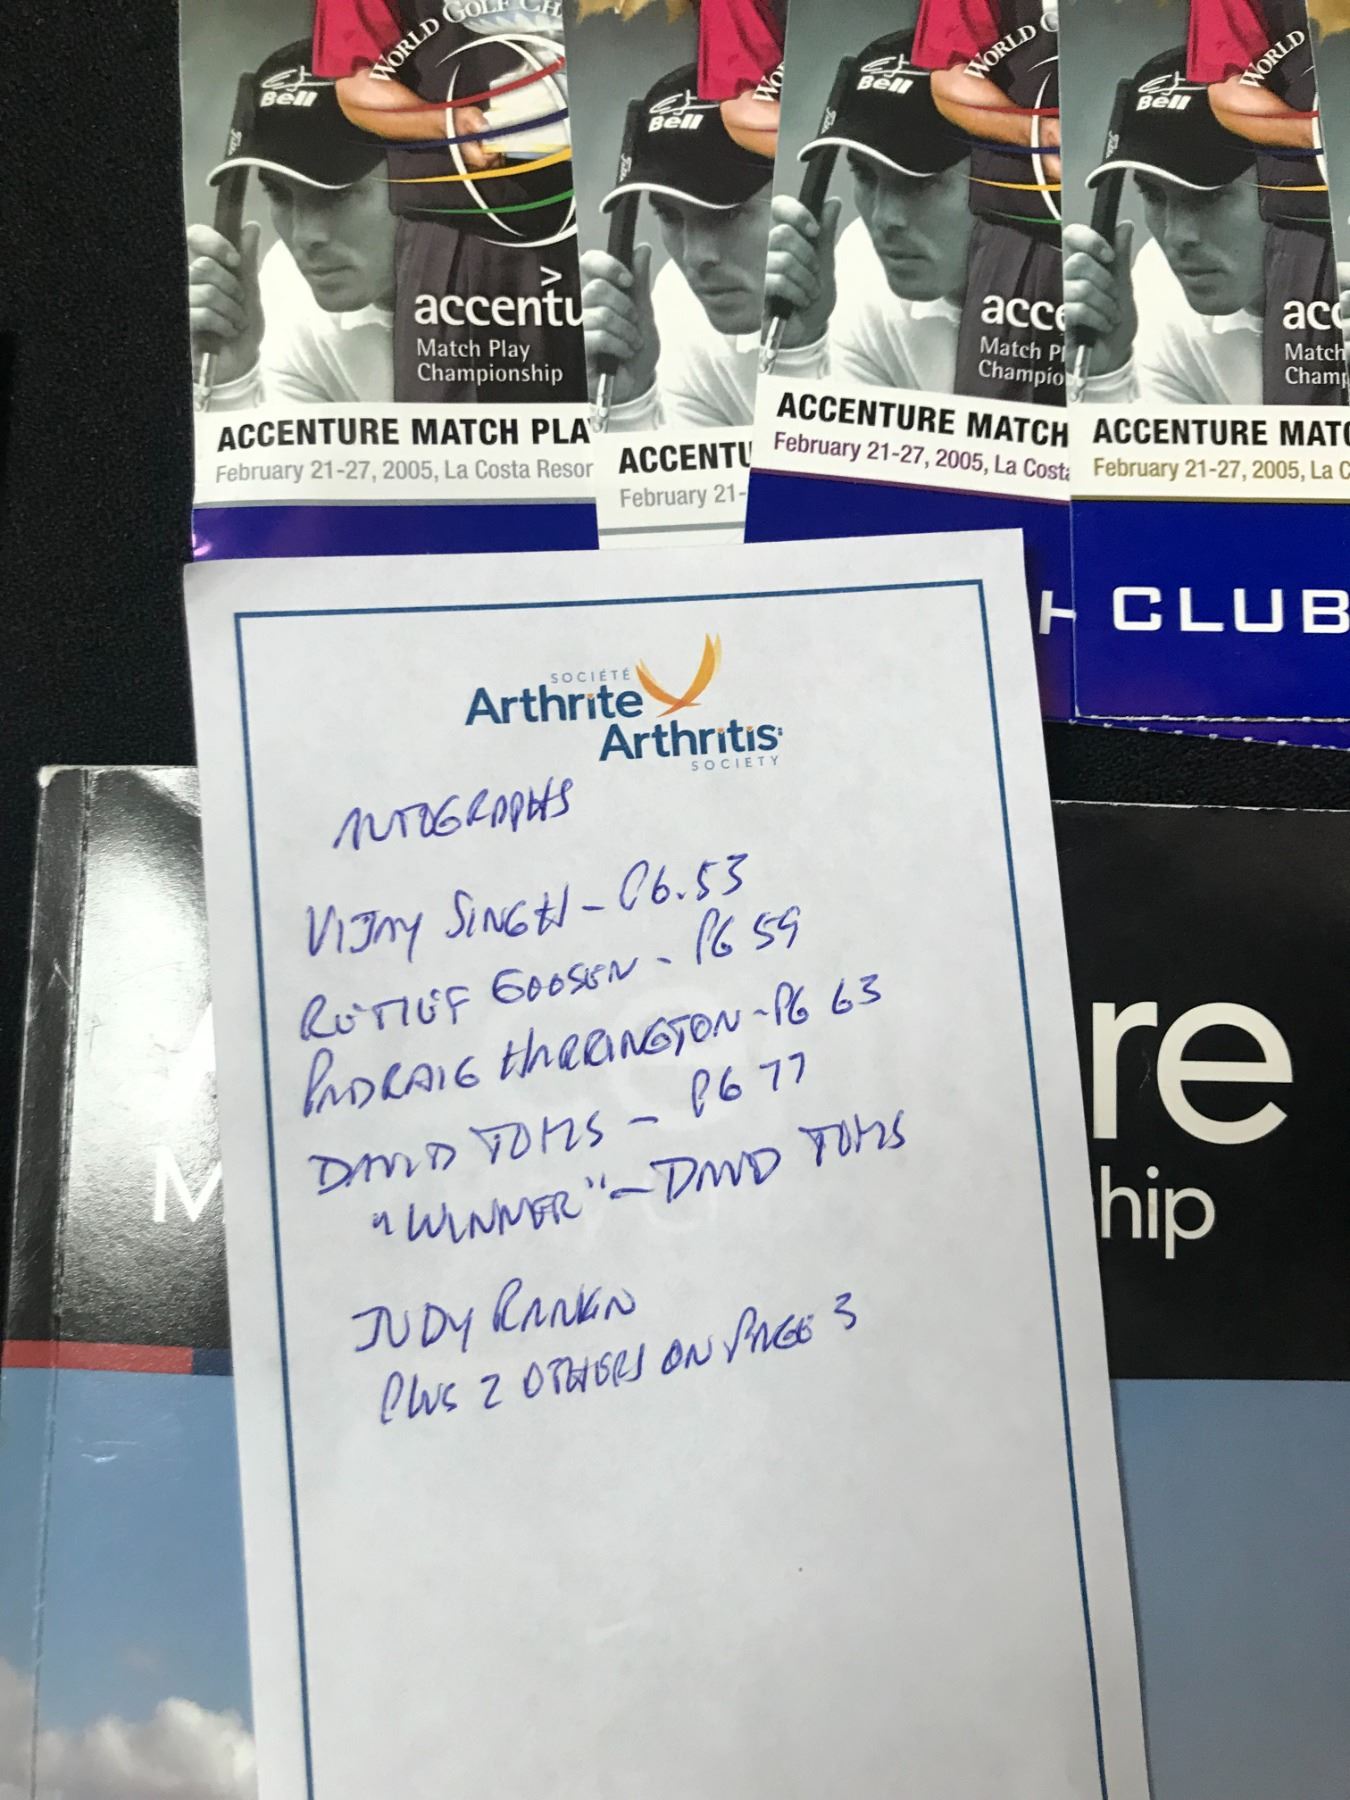 WORLD GOLF CH
Bell
accentu
Match Play
Championship
ACCENTURE MATCH PLA
February 21-27, 2005, La Costa Resor
WO
Bell
ACCENTU
February 21-
WORLD G
Bell
acce
Match Pl
Champio
ACCENTURE MATCH
February 21-27, 2005, La Costa
H
WORLD
Bell
acc
Match
Champ
ACCENTURE MATC
February 21-27, 2005, La C
CLUB
SOCIÉTÉ
Arthrite
Arthritis
SOCIETY
AUTOGRAPHS
VIJAY SINGH - PG. 53
RETIEF GOOSEN - PG 59
PADRAIG HARRINGTON - PG 63
DAVID TOMS - PG 77
"WINNER" - DAVID TOMS
JUDY RANKIN
PLUS 2 OTHERS ON PAGE 3
re
M
hip